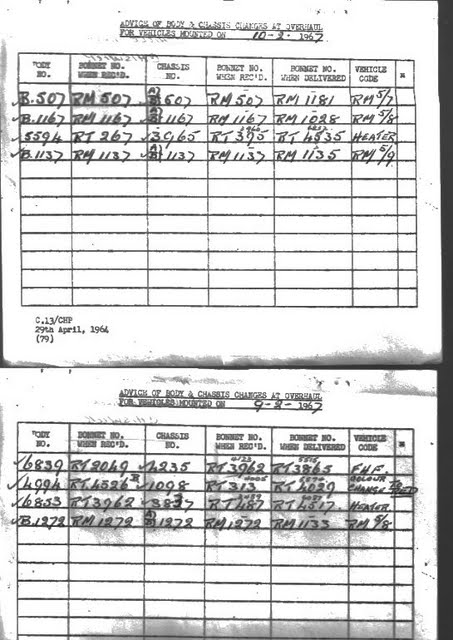 ADVICE OF BODY & CHASSIS CHANGES AT OVERHAUL
FOR VEHICLES MOUNTED ON 10-2- 1967
BODY NO. BONNET NO. WHEN REC'D. CHASSIS NO. BONNET NO. WHEN REC'D. BONNET NO. WHEN DELIVERED VEHICLE CODE
✓B.507 RM 507 507 RM 507 RM 1181 RM 5/7
✓B.1167 RM 1167 1167 RM 1167 RM 1028 RM 5/8
✓5594 RT 267 ✓3965 RT 395 RT 4535 HEATER
✓B.1137 RM 1137 1137 RM 1137 RM 1135 RM 5/9
C.13/CHP
29th April, 1964
(79)
ADVICE OF BODY & CHASSIS CHANGES AT OVERHAUL
FOR VEHICLES MOUNTED ON 9-2- 1967
BODY NO. BONNET NO. WHEN REC'D. CHASSIS NO. BONNET NO. WHEN REC'D. BONNET NO. WHEN DELIVERED VEHICLE CODE
✓6839 RT 2049 ✓4235 RT 3962 RT 3865
✓4994 RT 4526 ✓1098 RT 313 RT 4029 COLOUR CHANGE TO RED
✓6853 RT 3962 RT 487 RT 4517 HEATER
✓B.1272 RM 1272 1272 RM 1272 RM 1133 RM 5/8